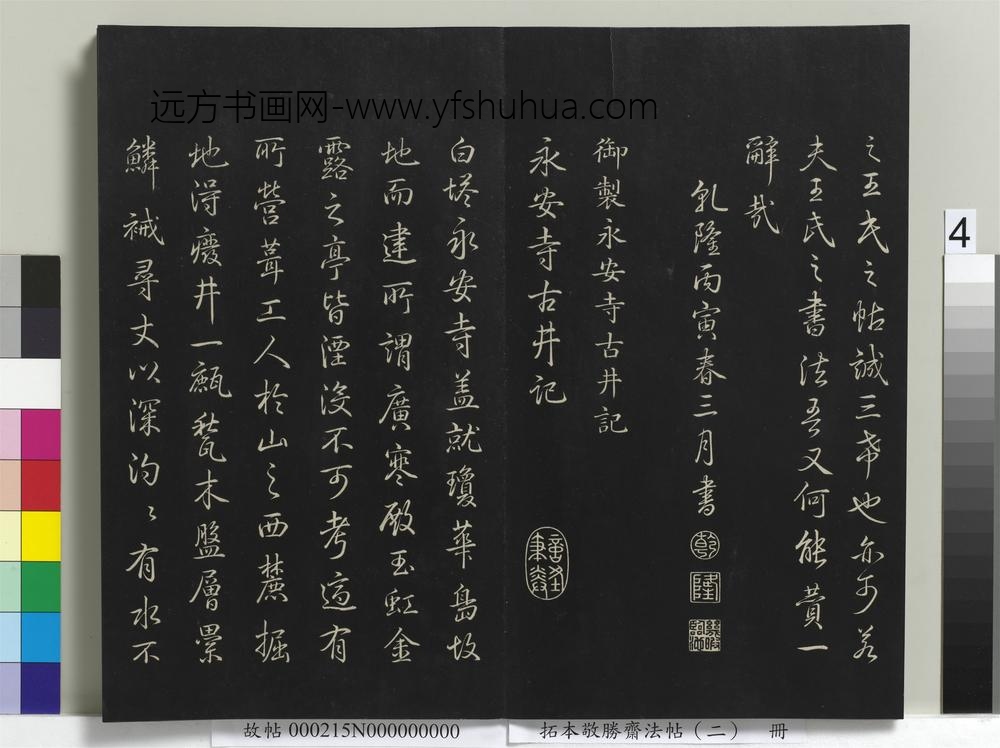 远方书画网-www.yfshuhua.com
之王氏之帖誠三希也亦可若
夫王氏之書法吾又何能贊一
辭哉
乾隆丙寅春三月書
乾
隆
御製永安寺古井記
永安寺古井記
白塔永安寺盖就瓊華島故
地而建所謂廣寒殿玉虹金
露之亭皆湮没不可考適有
所營葺工人於山之西麓掘
地得癈井一甋甃木盤層纍
鱗裓尋丈以深汋〻有水不
4
故帖 000215N000000000
拓本敬勝齋法帖（二） 冊